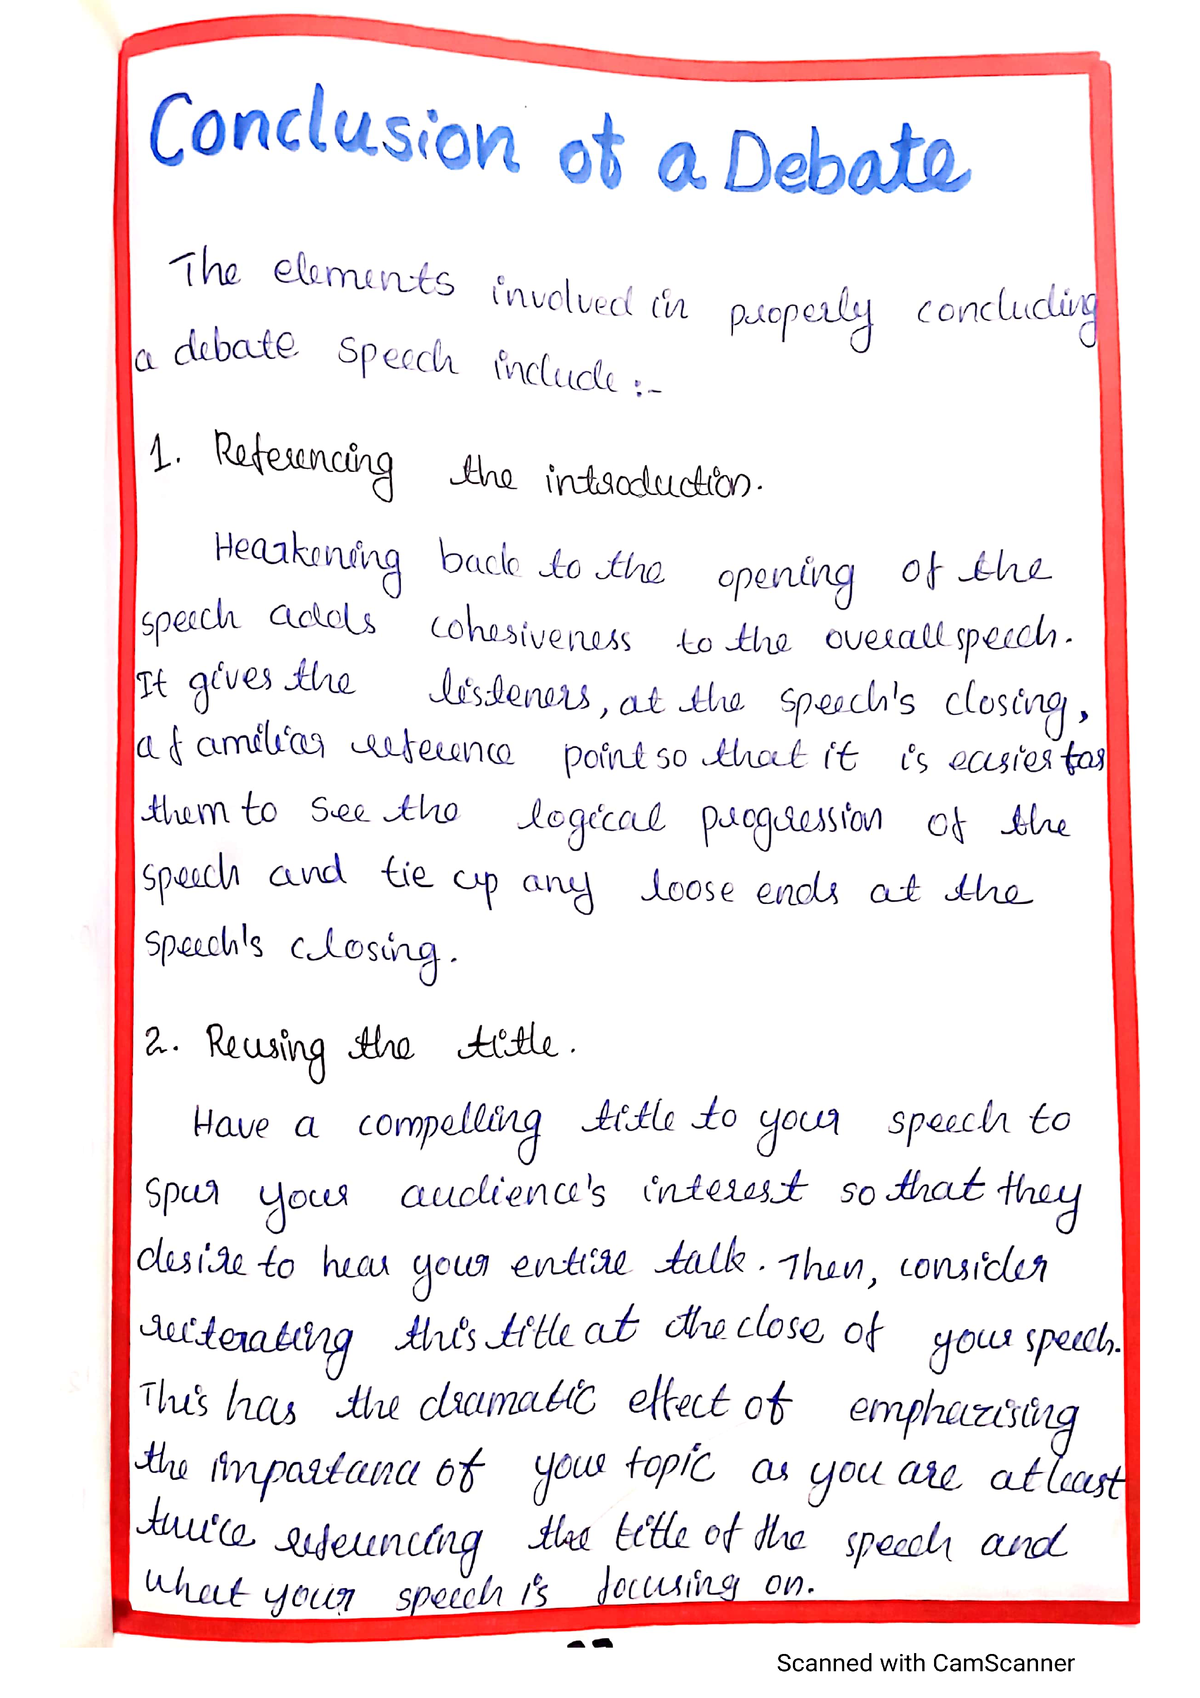 Conclusion of a Debate
The elements involved in properly concluding
a debate speech include :-
1. Referencing the introduction.
Hearkening back to the opening of the
speech adds cohesiveness to the overall speech.
It gives the listeners, at the speech's closing,
a familiar reference point so that it is easier for
them to see the logical progression of the
speech and tie up any loose ends at the
speech's closing.
2. Reusing the title.
Have a compelling title to your speech to
spur your audience's interest so that they
desire to hear your entire talk. Then, consider
reiterating this title at the close of your speech.
This has the dramatic effect of emphazising
the importance of your topic as you are at least
twice referencing the title of the speech and
what your speech is focusing on.
Scanned with CamScanner